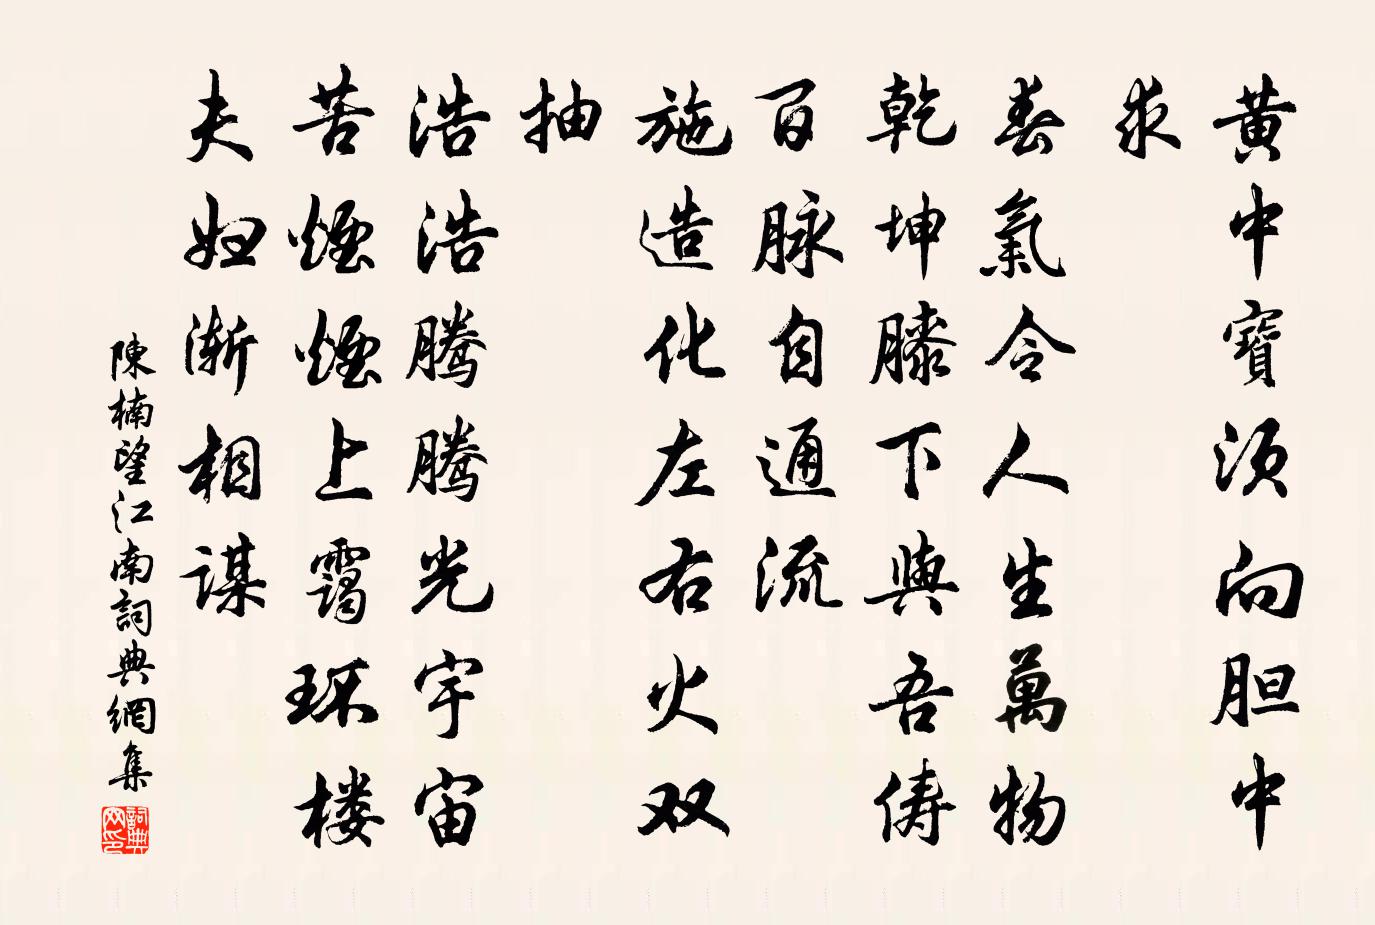 黄中寶须向胆中
求
春氣令人生萬物
乾坤膝下與吾俦
百脉自通流
施造化左右火双
抽
浩浩腾腾光宇宙
苦煙煙上霭环楼
夫妇渐相谋
陳楠望江南詞典網集
詞典网印